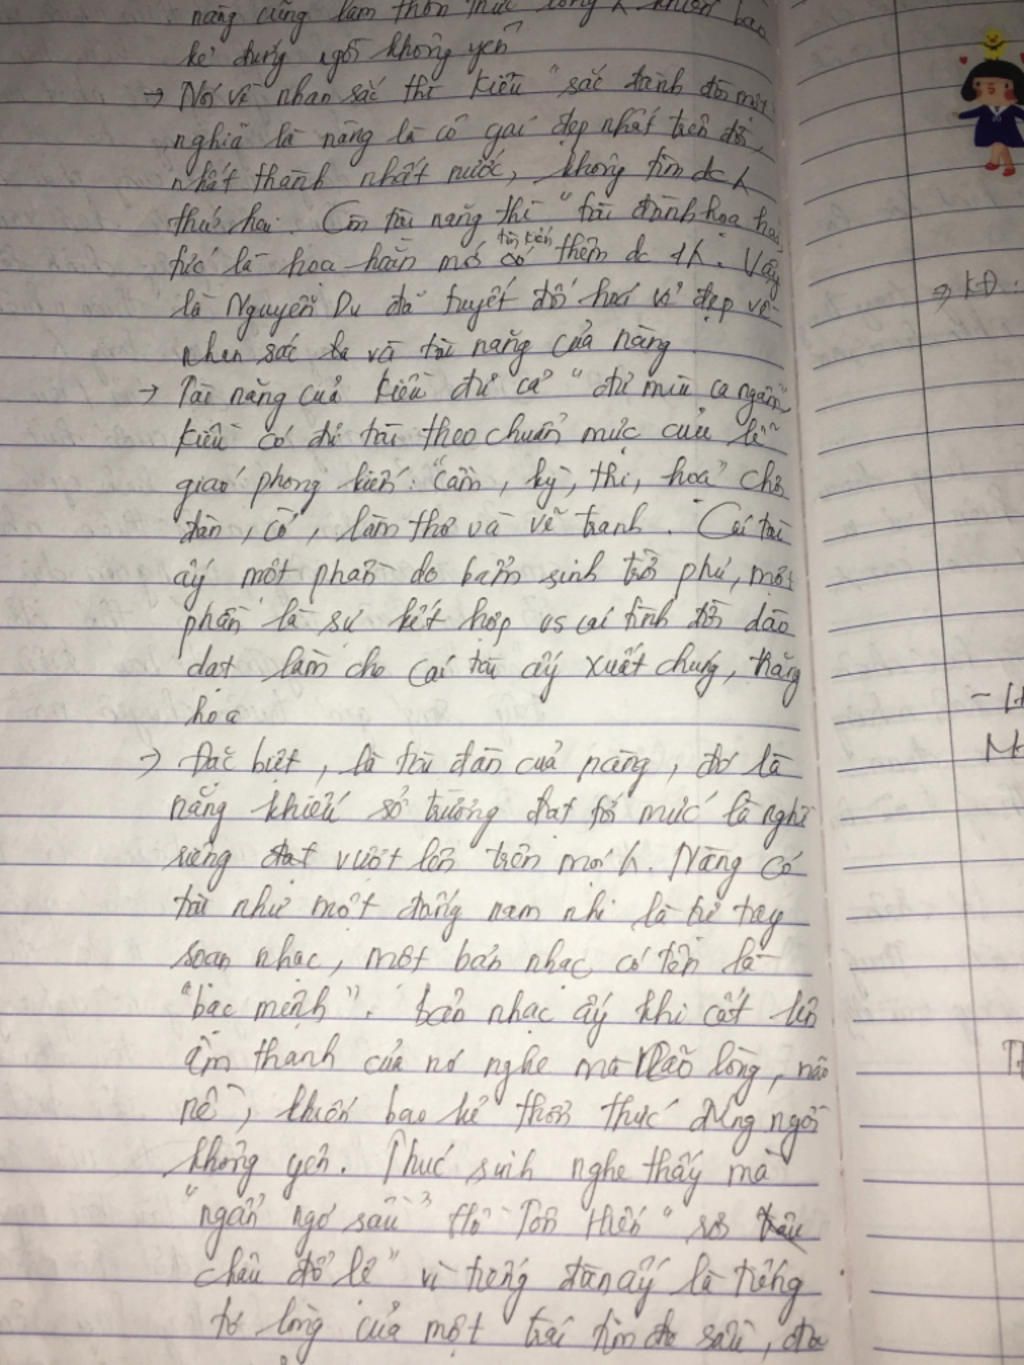 năng cũng làm thổn thức lòng khiến bao
kẻ đứng ngồi không yên
→ Nói về nhan sắc thì Kiều "sắc đành đòi một
nghĩa là nàng là cô gái đẹp nhất trên đời,
nhất thành nhất nước, không tìm dc
thứ hai. Còn tài năng thì "tài đành họa hai
tức là họa hoằn mới có tìm kiếm thêm dc 1k. Vậy
là Nguyễn Du đã tuyết đối hoá vẻ đẹp về
nhan sắc và tài năng của nàng
→ Tài năng của Kiều đủ cả "đủ mùi ca ngâm"
Kiều có đủ tài theo chuẩn mực của lễ
giáo phong kiến: "cầm, kỳ, thi, hoạ"
đàn, cờ, làm thơ và vẽ tranh. Cái tài
ấy một phần do bẩm sinh trời phú, một
phần là sự kết hợp vs cái tình dồi dào
dạt làm cho cái tài ấy xuất chúng, thăng
hoa
→ Đặc biệt, là tài đàn của nàng, đó là
năng khiếu sở trường đạt tới mức là nghề
riêng đạt vượt lên trên mọi k. Nàng có
tài như một đấng nam nhi là tự tay
soạn nhạc, một bản nhạc có tên là
"bạc mệnh". bản nhạc ấy khi cất lên
âm thanh của nó nghe mà não lòng, não
nề, khiến bao kẻ thổn thức đứng ngồi
không yên. Thúc sinh nghe thấy mà
"ngẩn ngơ sầu" Hồ Tôn Hiến "rơi
châu đổ lệ" vì tiếng đàn ấy là tiếng
tơ lòng của một trái tim đa sầu, đa
⇒ KĐ